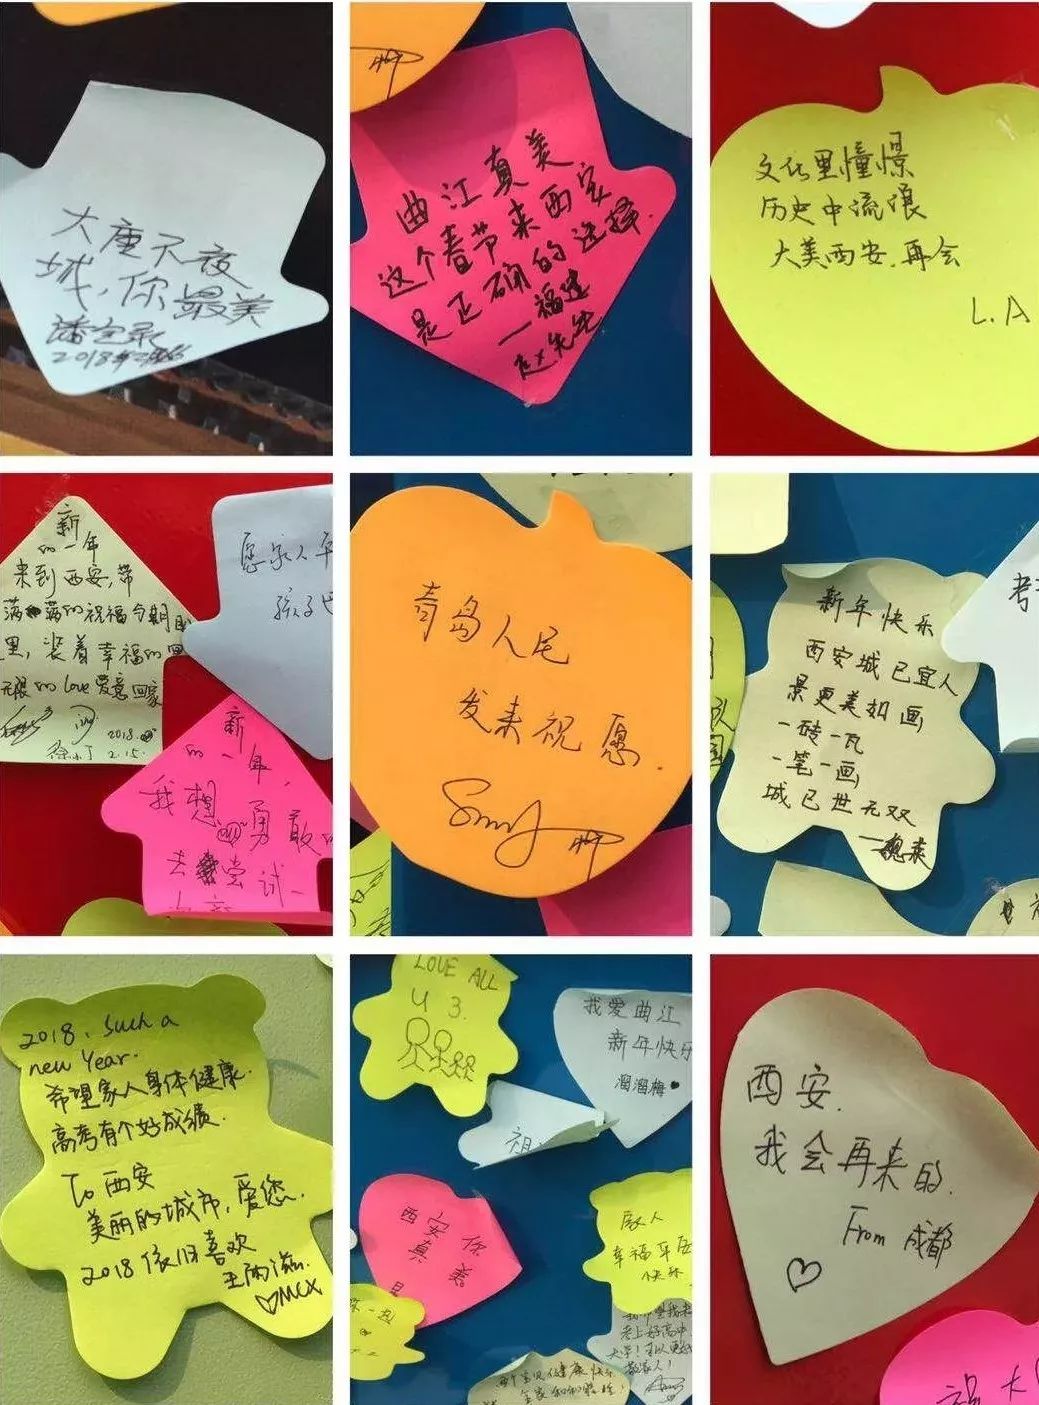 大唐不夜
城，你最美
曲江真美
这个春节来西安
是正确的选择.
—福建
赵先生
文化里憧憬
历史中流浪
大美西安.再会
L.A
新
的一年
来到西安,带
满满的祝福与期盼
里，装着幸福的
无限的love爱意回家
2018.
2.15.
愿家人平
孩子
新
的一年,
我想 勇敢
去 尝试一
青岛人民
发来祝愿.
新年快乐
西安城已宜人
景更美如画,
一砖一瓦
一笔一画,
城已世无双
考
2018. Such a
new Year.
希望家人身体健康.
高考有个好成绩.
To 西安
美丽的城市,爱您.
2018依旧喜欢
♡MCX
LOVE ALL
U 3.
我爱曲江
新年快乐
溜溜梅♥
祖
西安你
真美
家人
幸福平安
快乐
考上好高中
大学！可以
家人！
健康快乐
全家和和睦睦！
西安.
我会再来的.
From 成都
♡
祝大